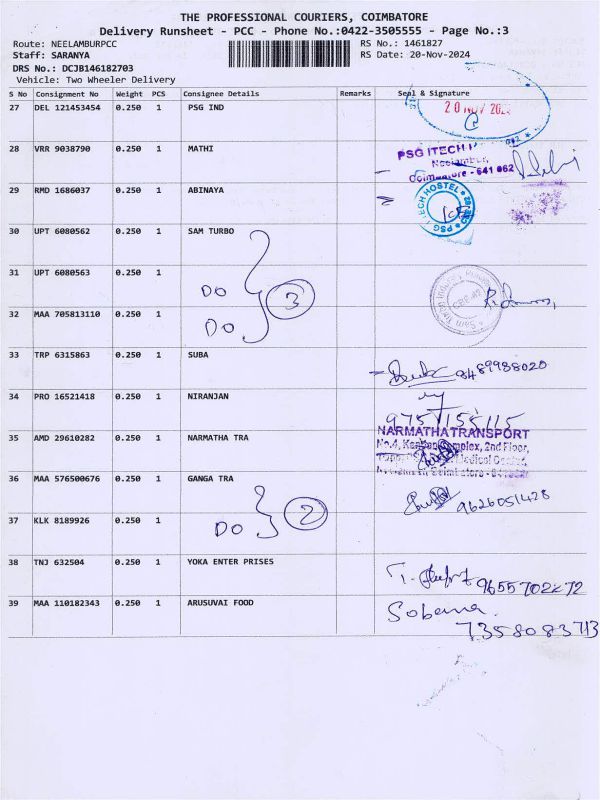 THE PROFESSIONAL COURIERS, COIMBATORE
Delivery Runsheet - PCC - Phone No.:0422-3505555 - Page No.:3
Route: NEELAMBURPCC RS No.: 1461827
Staff: SARANYA RS Date: 20-Nov-2024
DRS No.: DCJB146182703
Vehicle: Two Wheeler Delivery
S No Consignment No Weight PCS Consignee Details Remarks Seal & Signature
27 DEL 121453454 0.250 1 PSG IND
20 NOV
28 VRR 9038790 0.250 1 MATHI
PSG ITECH
Neelambur,
Coimbatore - 641 062
29 RMD 1686037 0.250 1 ABINAYA
TECH HOSTEL
PSG
30 UPT 6080562 0.250 1 SAM TURBO
31 UPT 6080563 0.250 1
DO 3
32 MAA 705813110 0.250 1
DO
33 TRP 6315863 0.250 1 SUBA
8489988020
34 PRO 16521418 0.250 1 NIRANJAN
9751155115
35 AMD 29610282 0.250 1 NARMATHA TRA
NARMATHA TRANSPORT
2nd Floor,
36 MAA 576500676 0.250 1 GANGA TRA
9626051428
37 KLK 8189926 0.250 1
DO 2
38 TNJ 632504 0.250 1 YOKA ENTER PRISES
39 MAA 110182343 0.250 1 ARUSUVAI FOOD
Sobana
7358083713